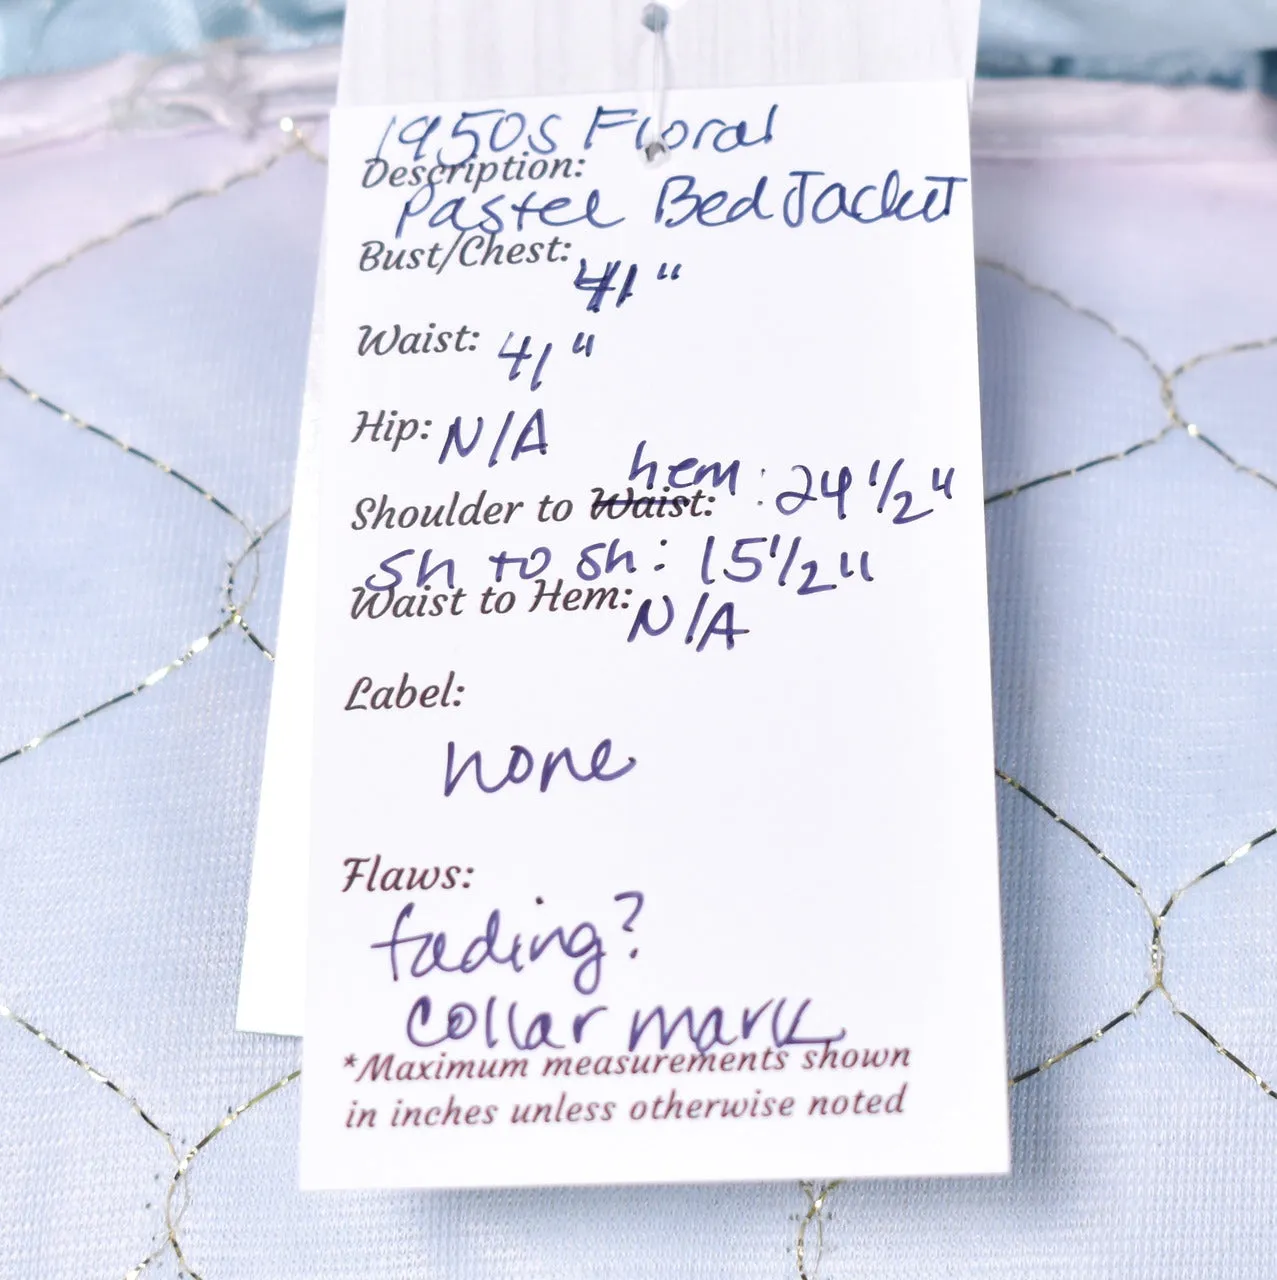 1950s Floral
Description:
Pastel Bed Jacket
Bust/Chest: 41"
Waist: 41"
Hip: N/A
Shoulder to Waist: hem: 24 1/2"
sh to sh: 15 1/2"
Waist to Hem: N/A
Label:
none
Flaws:
fading?
collar mark
*Maximum measurements shown
in inches unless otherwise noted